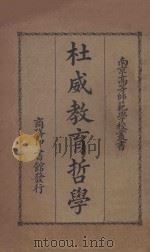 南京高等師範學校叢書
杜威教育哲學
商務印書館發行